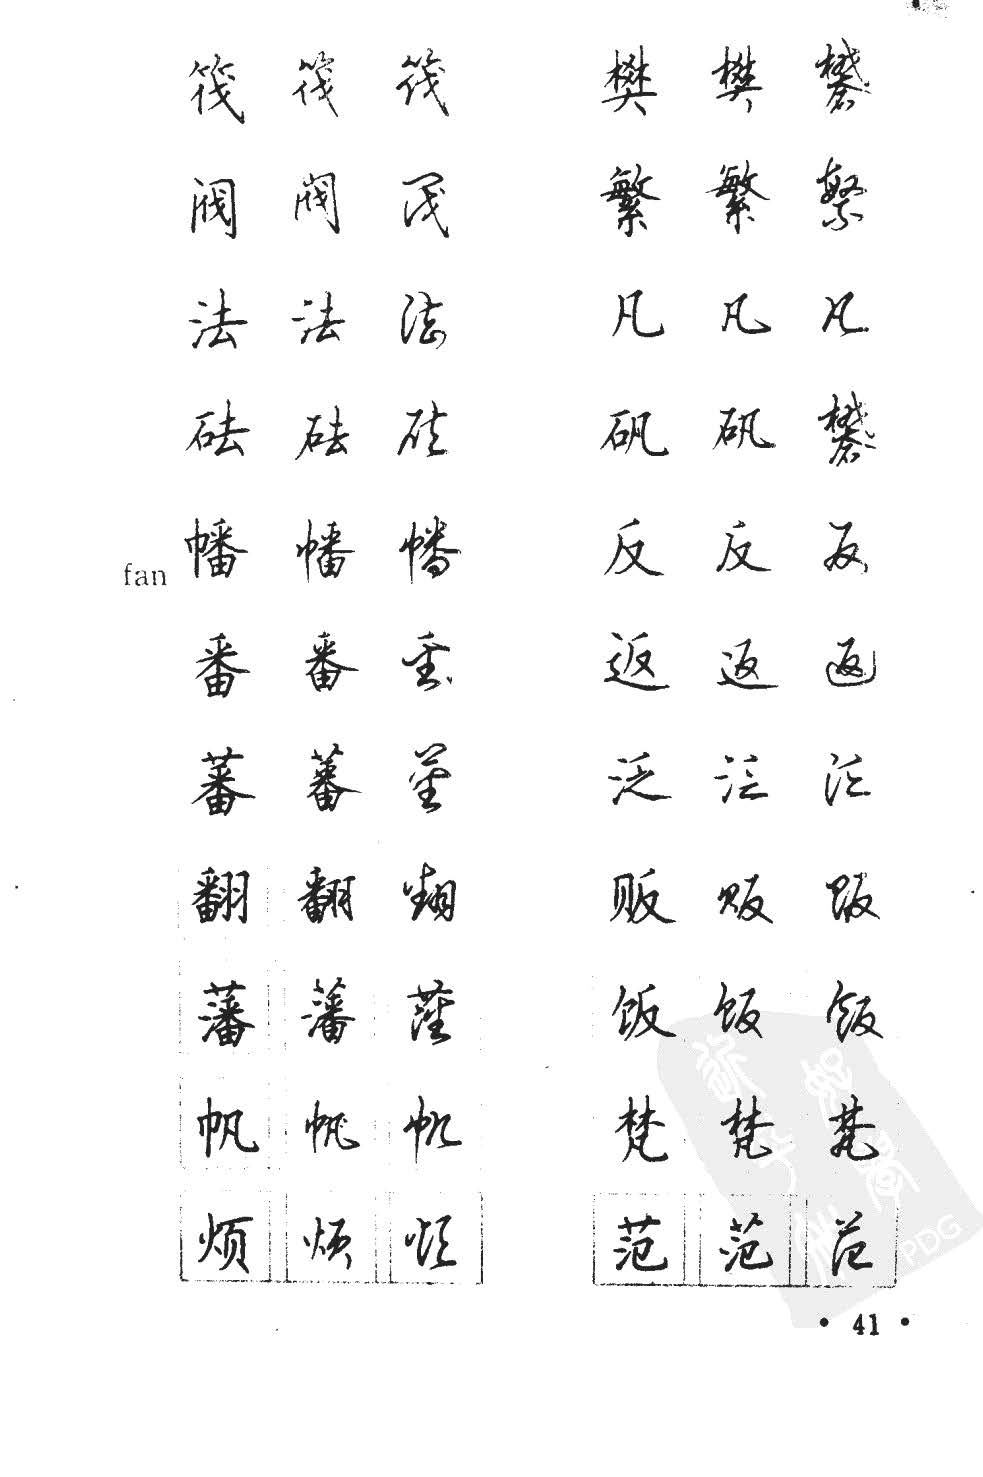 筏 筏 筏
阀 阀 阀
法 法 法
砝 砝 砝
fan 幡 幡 幡
番 番 番
蕃 蕃 蕃
翻 翻 翻
藩 藩 藩
帆 帆 帆
烦 烦 烦
樊 樊 攀
繁 繁 繁
凡 凡 凡
矾 矾 攀
反 反 反
返 返 返
泛 泛 泛
贩 贩 贩
饭 饭 饭
梵 梵 梵
范 范 范
PDG
• 41 •